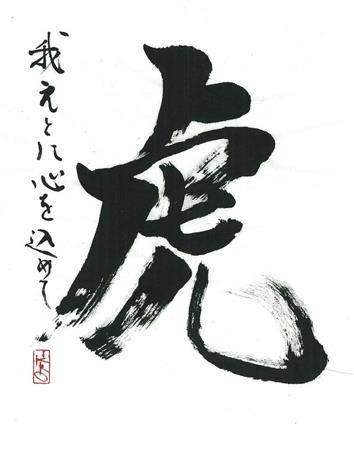 虎
我えとに心を込めて